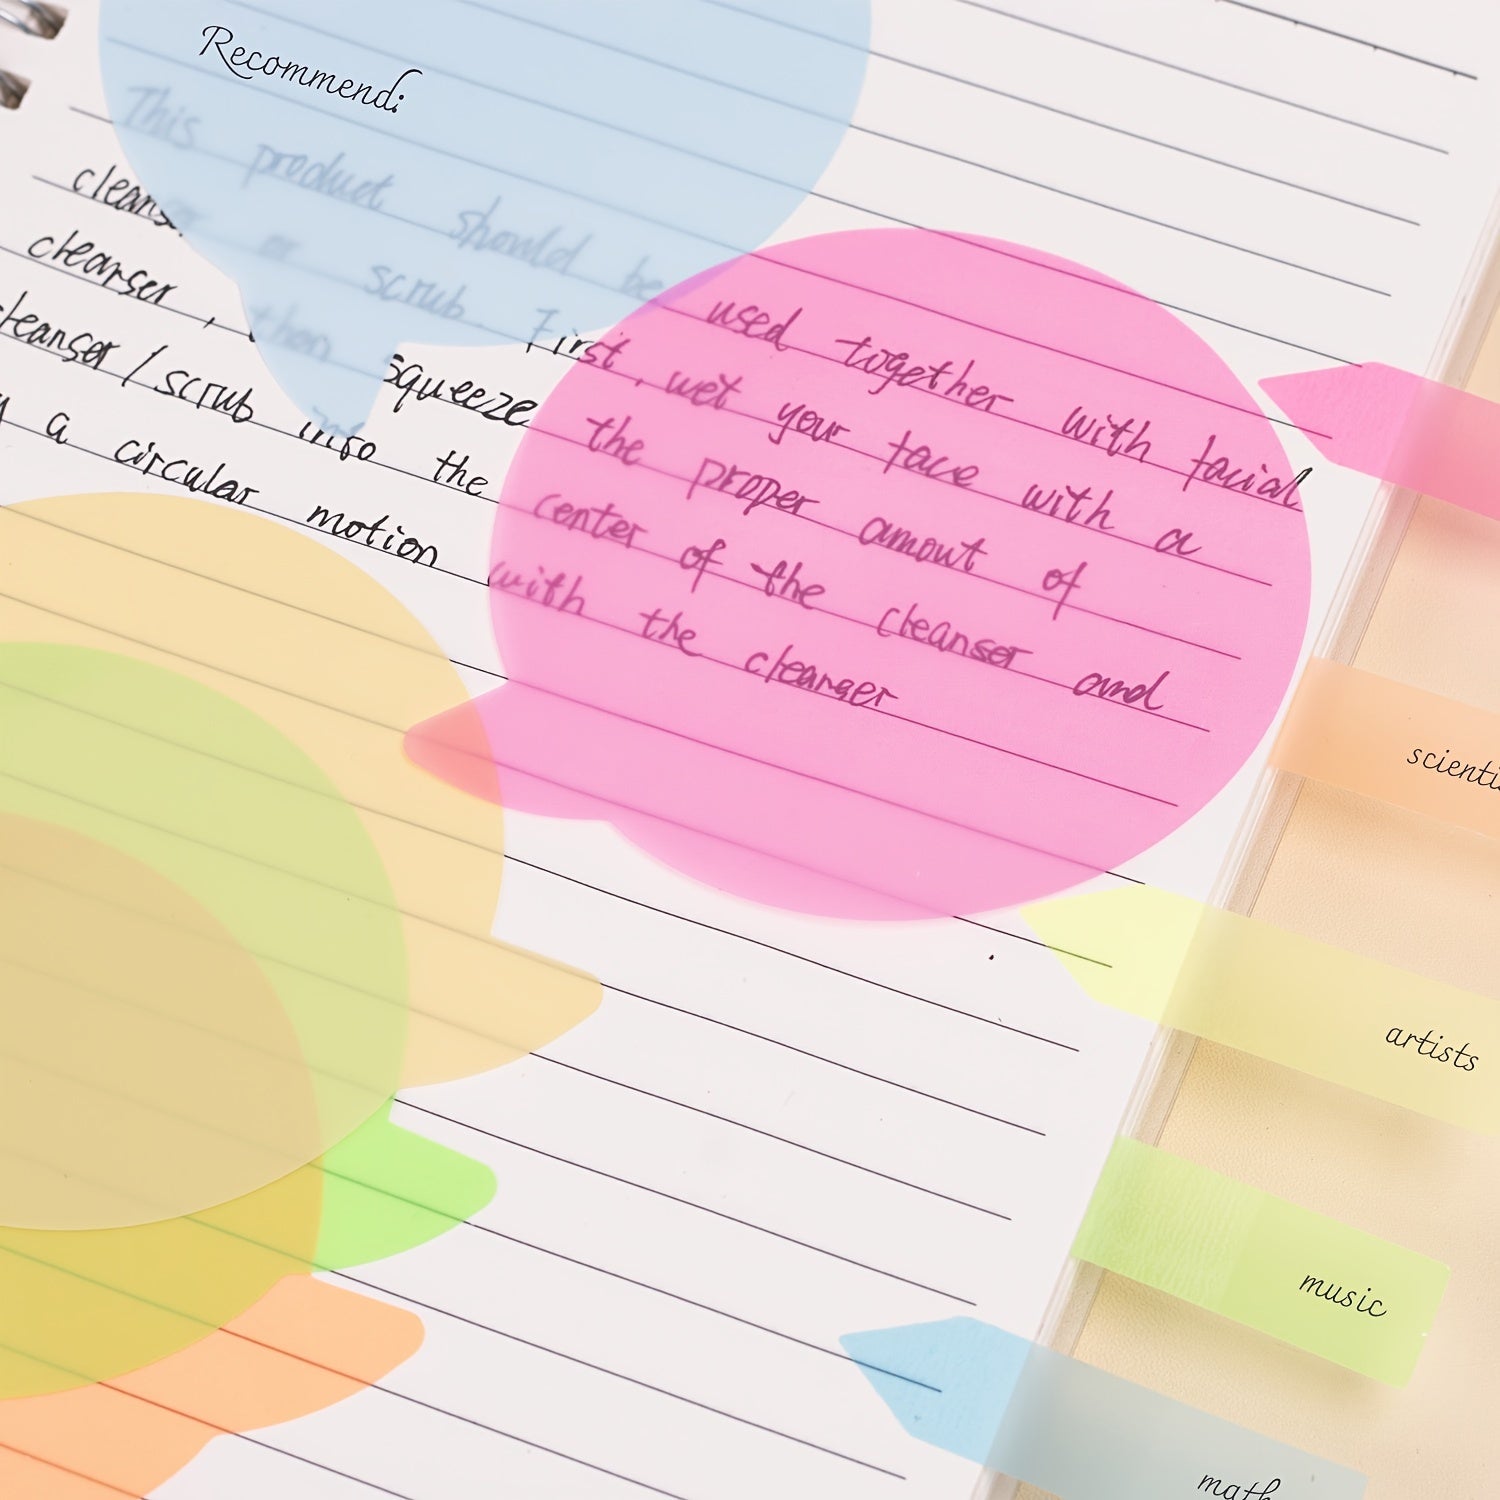 Recommend:
This product should be used together with facial
cleanser or scrub. First, wet your face with a
cleanser, then squeeze the proper amout of
cleanser/scrub into the center of the cleanser and
a circular motion with the cleanser
scienti
artists
music
math